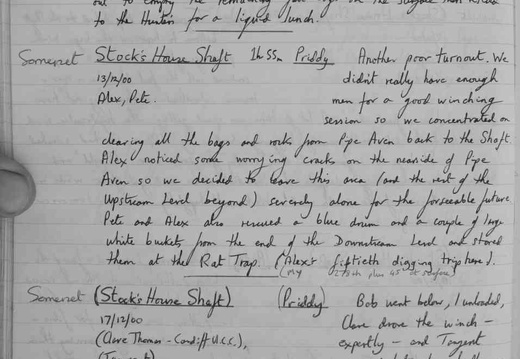 to the Hunters for a liquid lunch.
Somerset Stock's House Shaft 1h 55m Priddy Another poor turnout. We
13/12/00 didn't really have enough
Alex, Pete. men for a good winching
session so we concentrated on
clearing all the bags and rocks from Pipe Aven back to the Shaft.
Alex noticed some worrying cracks on the nearside of Pipe
Aven so we decided to leave this area (and the rest of the
Upstream Level beyond) severely alone for the forseeable future.
Pete and Alex also rescued a blue drum and a couple of large
white buckets from the end of the Downstream Level and stored
them at the Rat Trap. (Alex's fiftieth digging trip here).
(My 278th plus 45 at surface)
Somerset (Stock's House Shaft) (Priddy) Bob went below, I unloaded,
17/12/00 Clare drove the winch -
(Clare Thomas - Cardiff U.C.C.), expertly - and Tangent